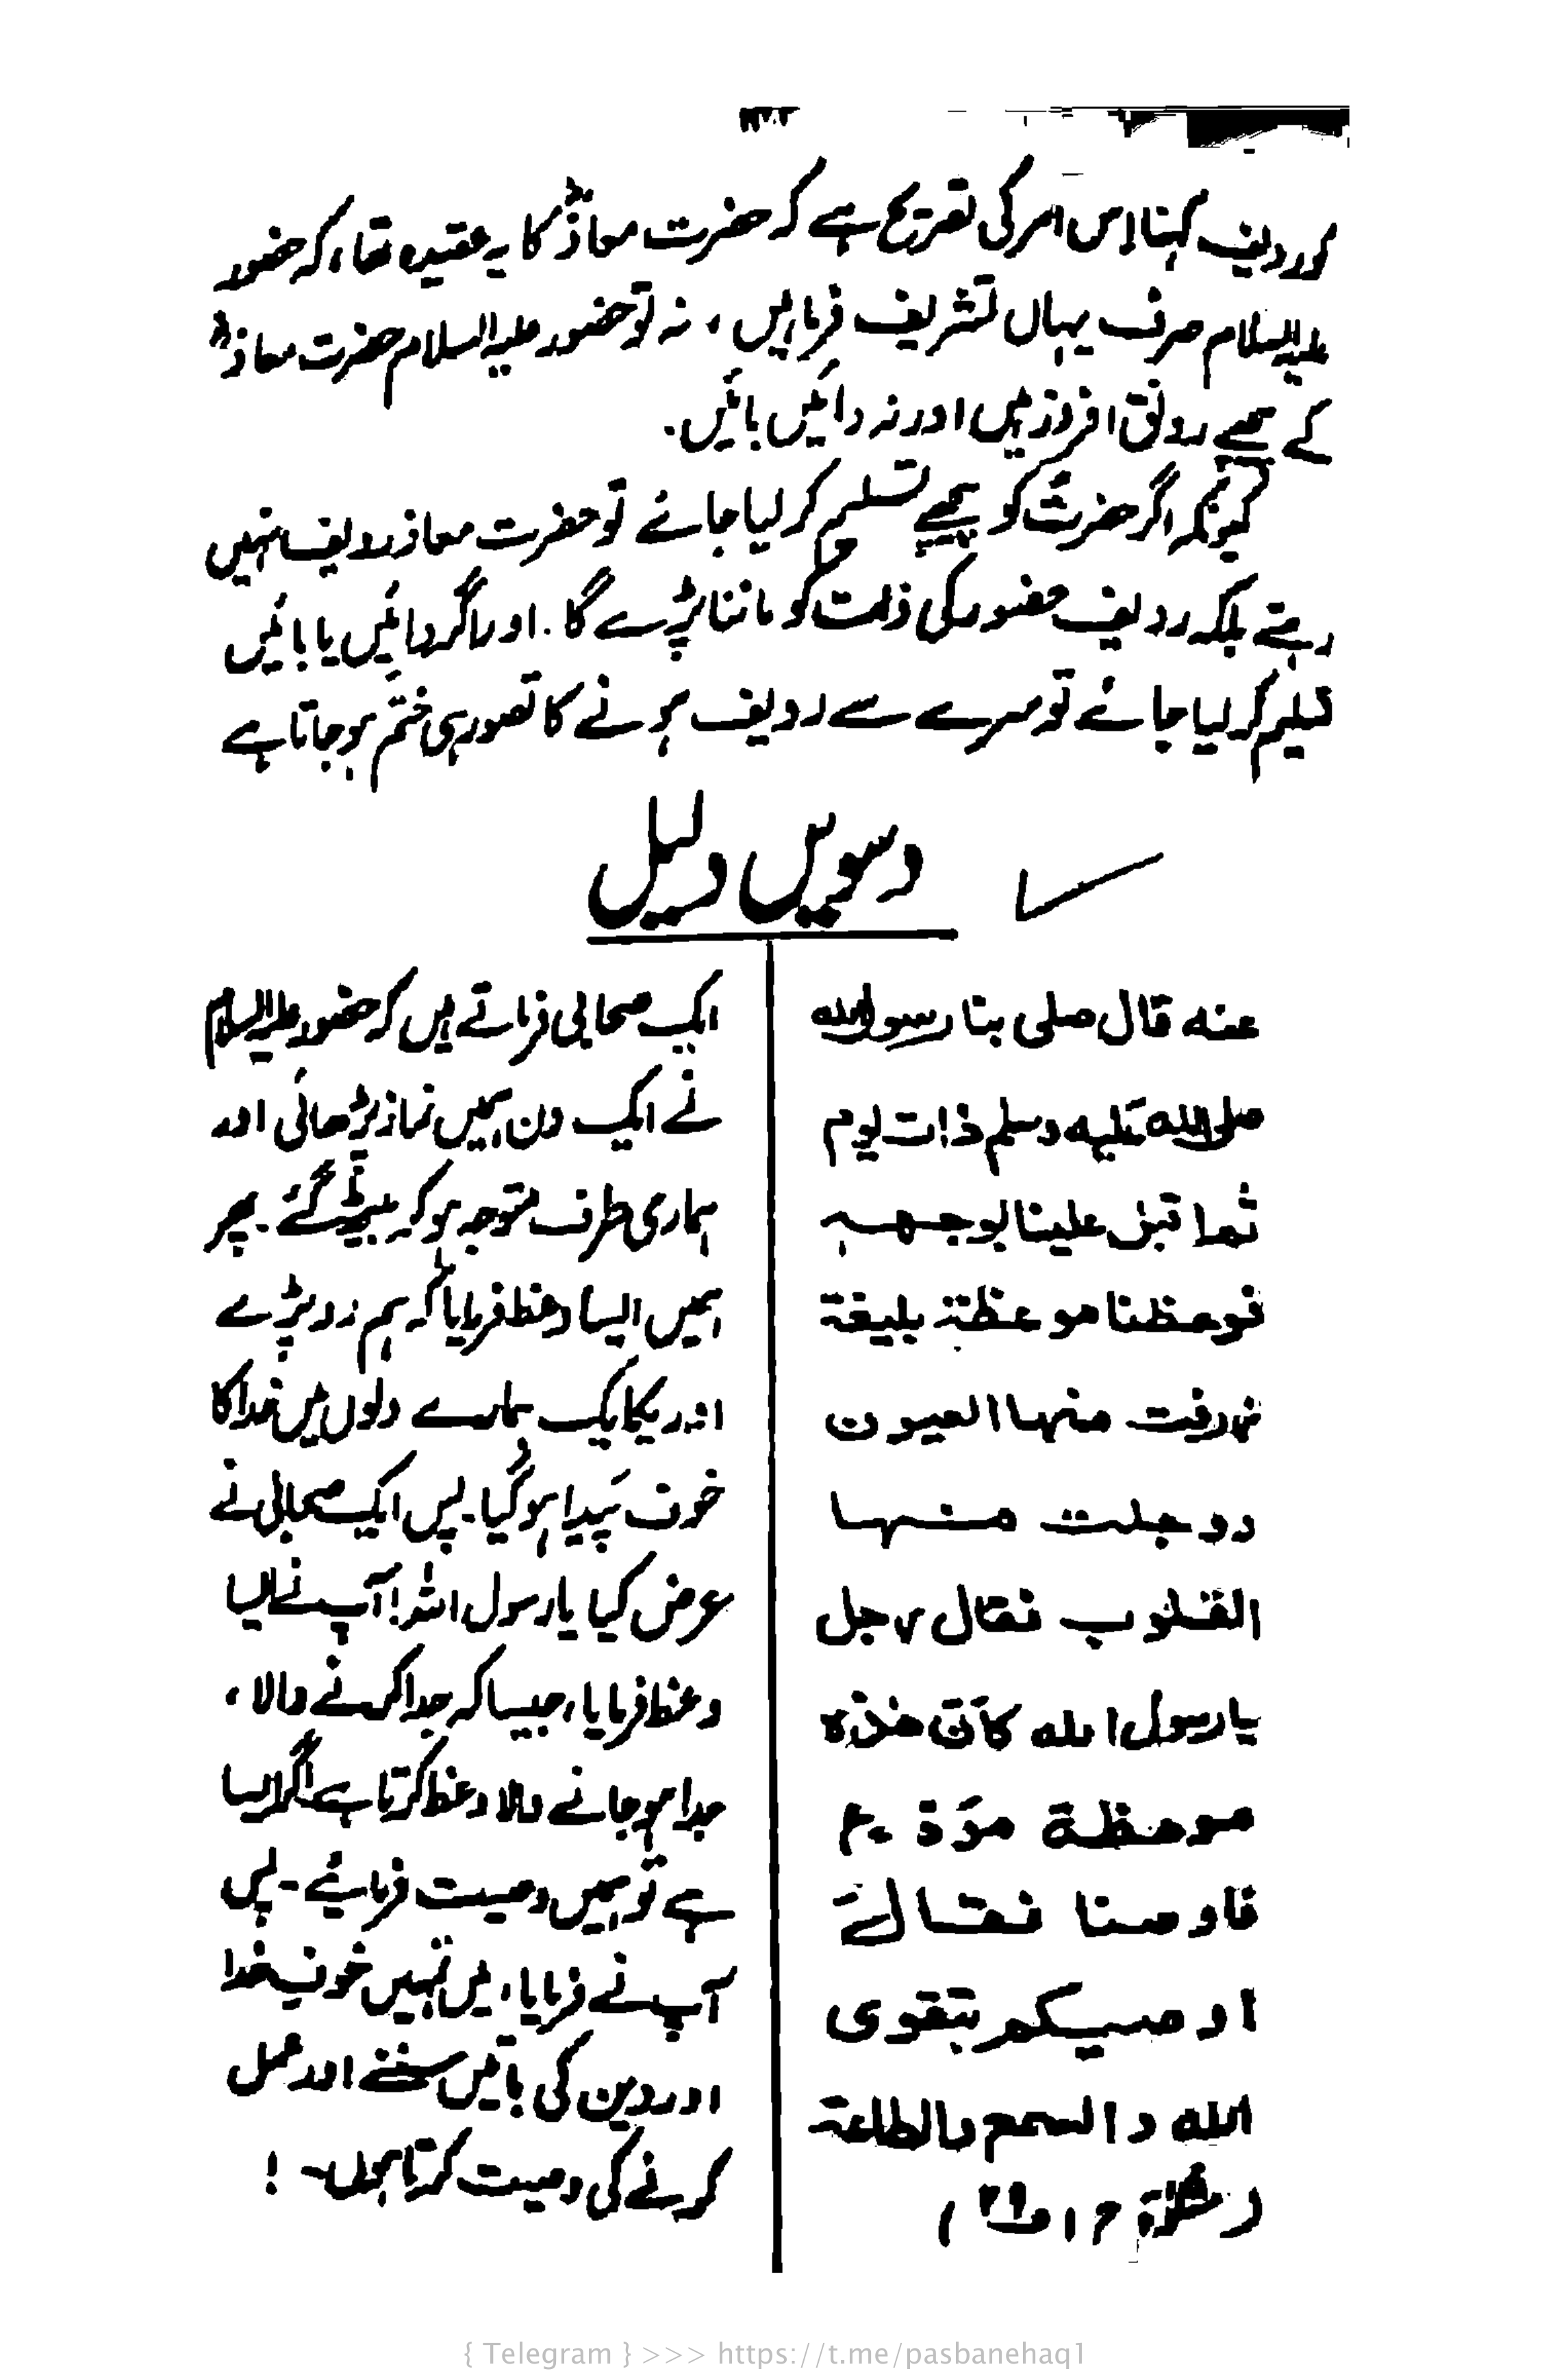 کو ردیف کہنا اس امر کی تصریح ہے کہ حضرت معاذؓ کا یہ عقیدہ تھا، کہ حضور
علیہ السلام صرف یہاں تشریف فرما ہیں ، نہ تو حضور علیہ السلام حضرت معاذؓ
کے پیچھے رونق افروز ہیں اور نہ دائیں بائیں.
کیونکہ اگر حضرتؐ کو پیچھے تسلیم کر لیا جائے تو حضرت معاذ ردیف نہیں
رہتے بلکہ ردیف حضور کی ذات کو ماننا پڑے گا. اور اگر دائیں یا بائیں
تسلیم کر لیا جائے تو سرے سے ردیف ہونے کا تصور ہی ختم ہو جاتا ہے
دسویں دلیل
عنه قال صلى بنا رسول الله
صلى الله عليه وسلم ذات يوم
ثم اقبل علينا بوجهه
فوعظنا موعظة بليغة
ذرفت منها العيون
ووجلت منها
القلوب فقال رجل
يا رسول الله كأن هذه
موعظة مودع
فاوصنا فقال
اوصيكم بتقوى
الله والسمع والطاعة
(مشکوٰۃ
ایک صحابی فرماتے ہیں کہ حضور علیہ السلام
نے ایک دن ہمیں نماز پڑھائی اور
ہماری طرف متوجہ ہو کر بیٹھ گئے ۔ پھر
ہمیں ایسا وعظ فرمایا کہ ہم رو پڑے
اور یکایک ہمارے دلوں میں خدا کا
خوف پیدا ہو گیا ۔ پس ایک صحابی نے
عرض کیا یا رسول اللہ! آپ نے ایسا
وعظ فرمایا، جیسا کہ جدا کرنے والا،
جدا ہو جانے والا وعظ کرتا ہے اگر ایسا
ہے تو ہمیں وصیت فرمائیے ۔ پس
آپ نے فرمایا، میں تمہیں خوفِ خدا
اور دین کی باتیں سننے اور عمل
کرنے کی وصیت کرتا ہوں ۔ !
{ Telegram } >>> https://t.me/pasbanehaq1